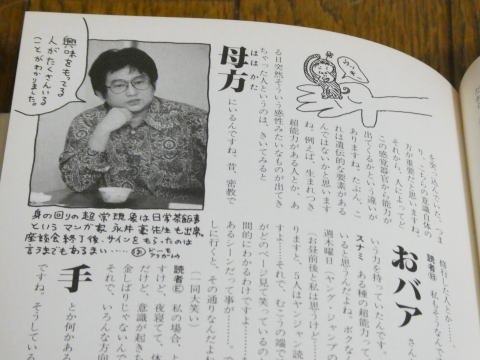 修行した人とか……
を突っ込んでいた。つま
り、こちらの意識自体の
方が重要だと思います。
それから、人によってど
この感覚器官から超能力
が出てくるかという違いが
ありますね。たぶん、こ
れは遺伝的な要素がある
んではないかと思います
ね。例えば、生まれつき
超能力がある人とか、あ
る日突然そういう感性みたいなものが出てき
ちゃった人というのは、きいてみると
母方
ははかた
にいるんですね。昔、密教で
ウッキー
興味をもってる
人がたくさんいる
ことがわかりました。
身の回りの超常現象は日常茶飯事
というマンガ家 永井豪先生も出席。
座談会終了後、サインをもらったのは
言うまでもあるまい……
読者B 私もそうなんで
おバア
さ
いう力を持っていたんです。
スナミ ある種の超能力って
いると思うんだよね。ボクな
週木曜日(ヤング・ジャンプの
(お昼前後と私は思うけど…
りますと、5人はヤンジャン読
すよ……それで、むこうの端で
がどのページ見て笑っているの
間的にわかるわけですよ……
あるシーンだって事が…。
に行くと、その通りなんだよね
(一同大笑い)
読者E 私の場合、と
すけど、夜寝てて、体
だけど、意識が起きち
金しばりじゃないんで
それで、いろんな方向
手
とか何かある
ですね、そうしている